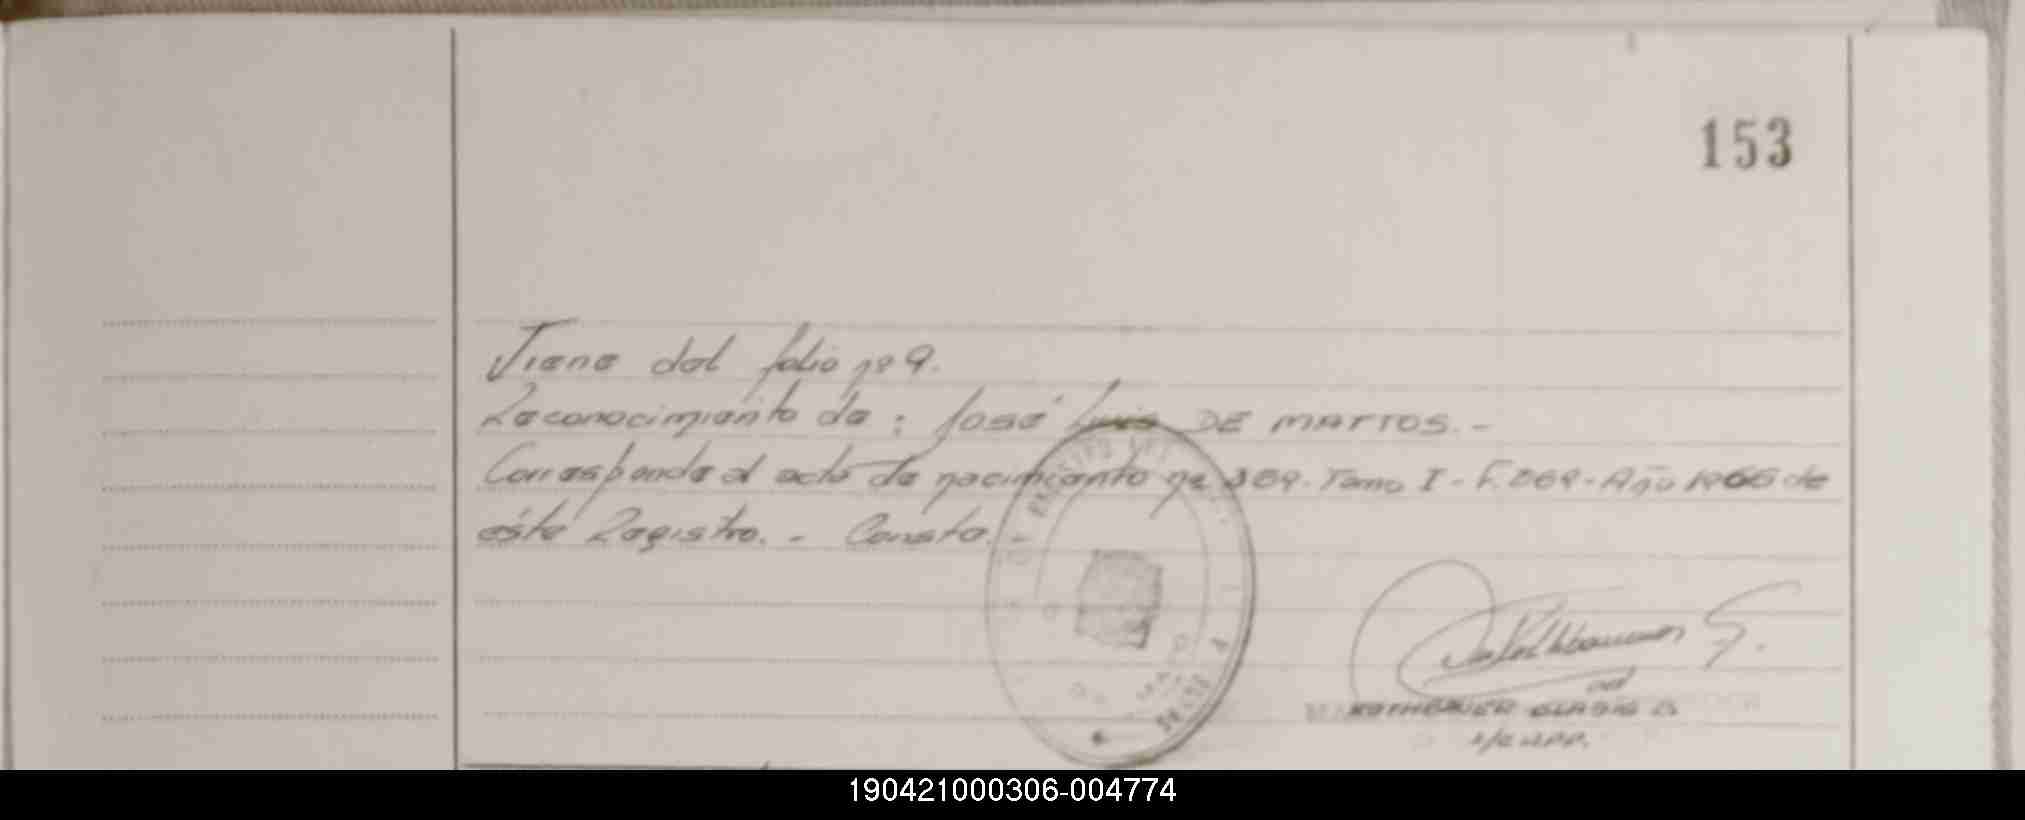 153
Viene del folio nº 9.
Reconocimiento de: José Luis DE MATTOS.-
Corresponde al acta de nacimiento nº 369. Tomo I - F. 069 - Año 1966 de
éste Registro. - Conste.
ROTHBAUER GLADIS
190421000306-004774